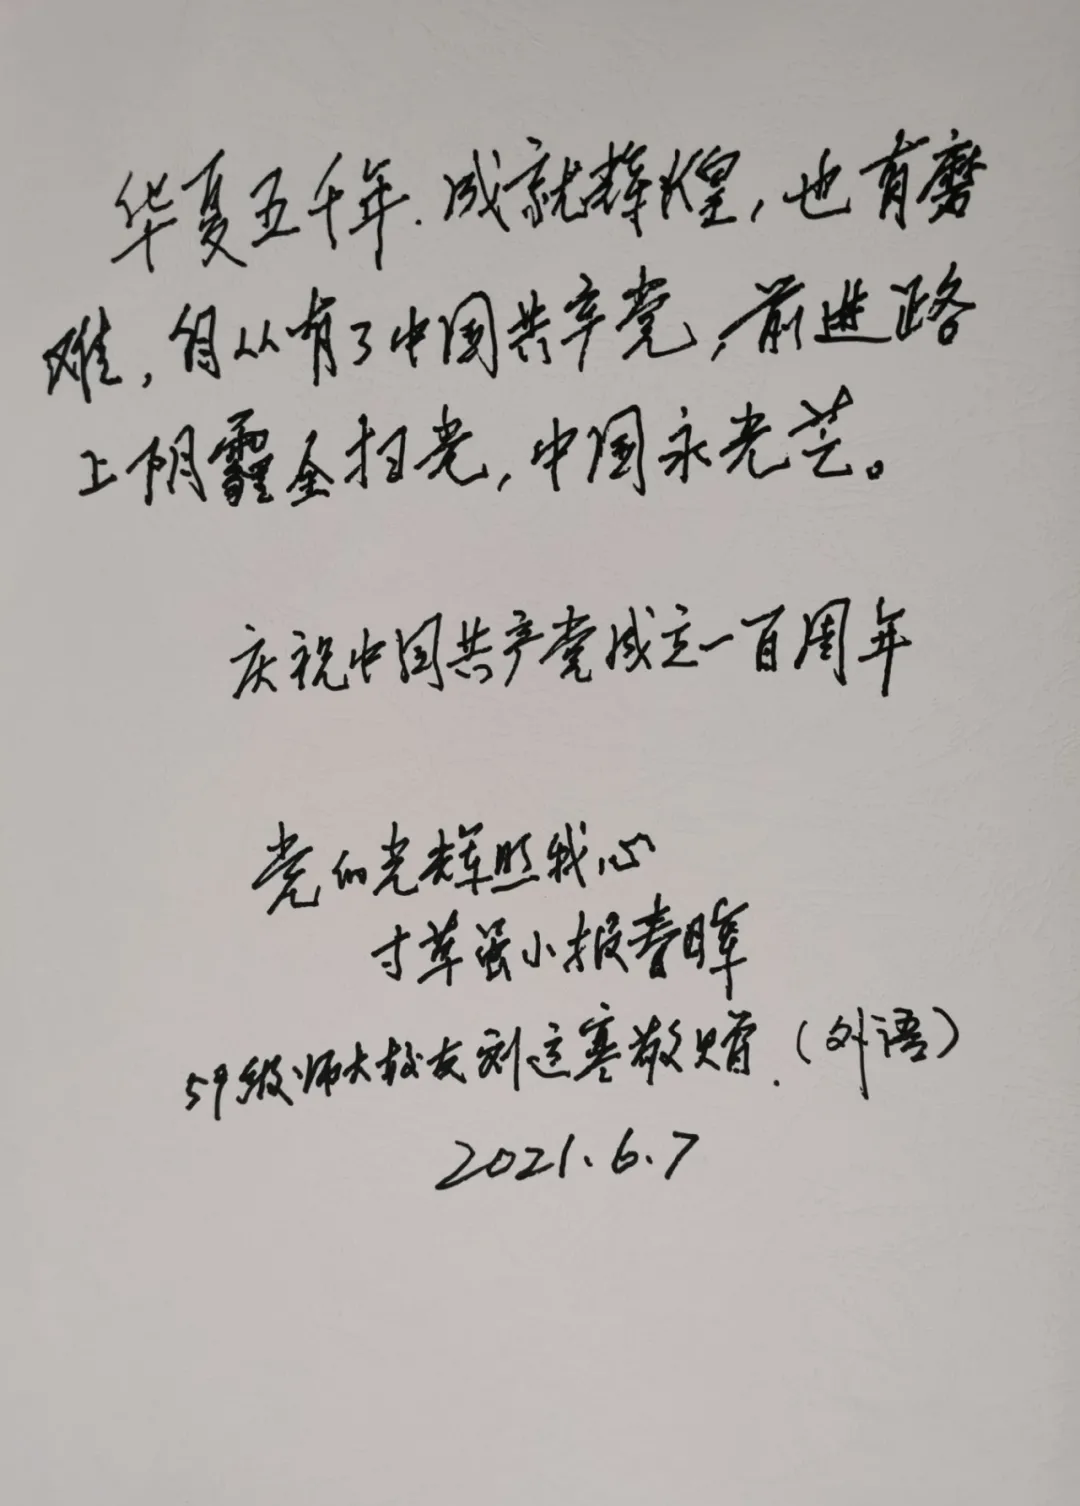 华夏五千年.成就辉煌,也有磨
难,自从有了中国共产党,前进路
上阴霾全扫光,中国永光芒。
庆祝中国共产党成立一百周年
党的光辉照我心
寸草虽小报春晖
59级师大校友刘这寒敬赠.(外语)
2021.6.7